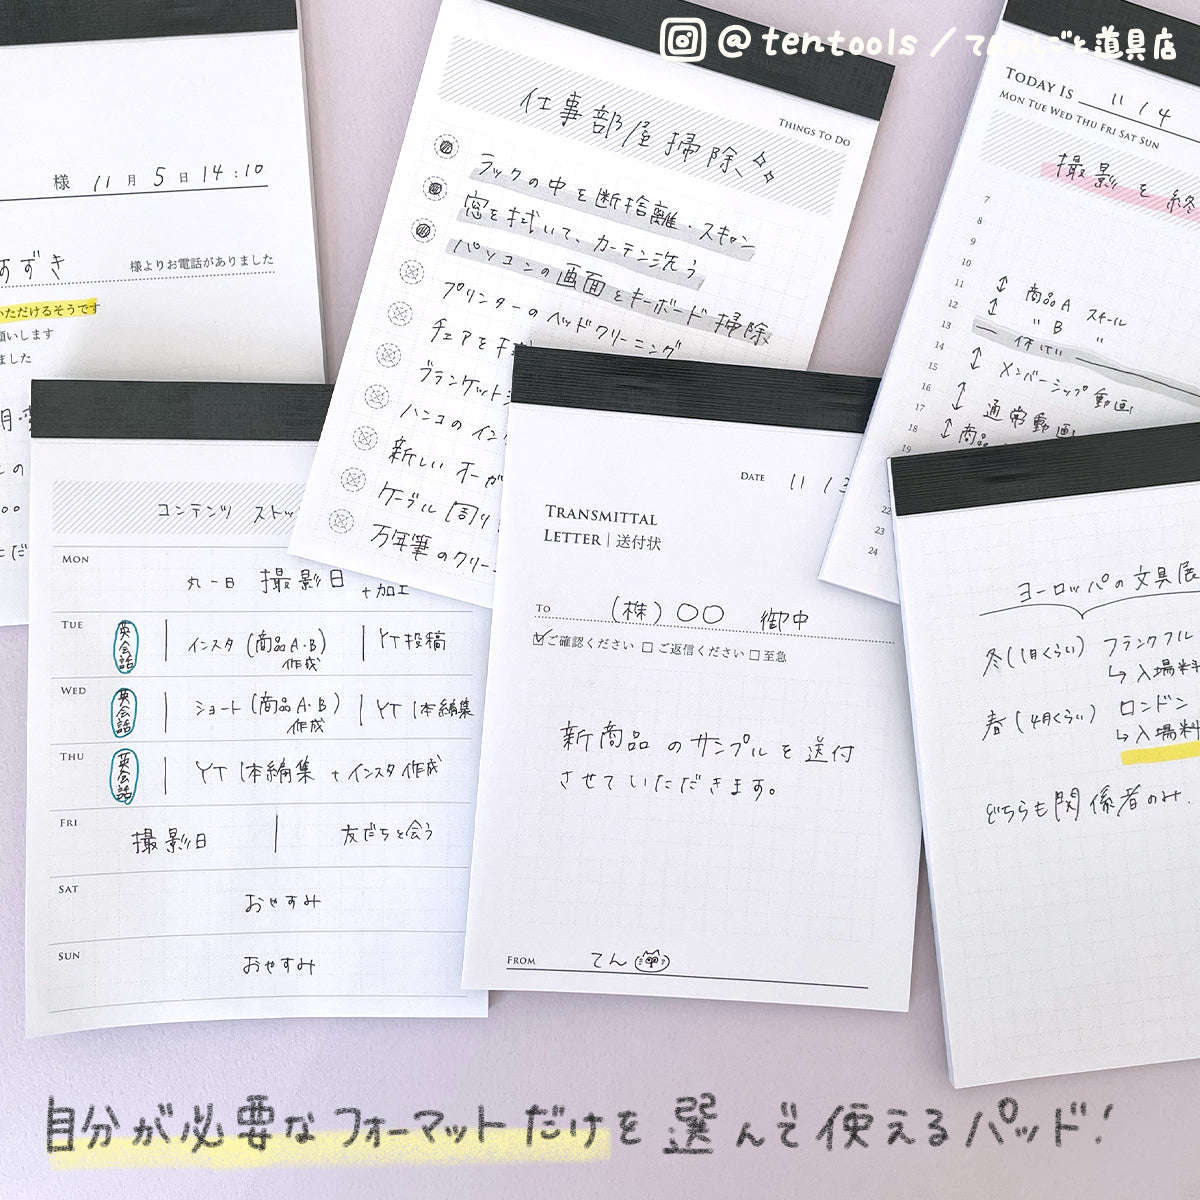 @tentools / てんのしごと道具店
様 11月5日14:10
すずき 様よりお電話がありました
いただけるそうです
願いします
ました
THINGS TO DO
仕事部屋掃除
ラックの中を断捨離・スキャン
窓を拭いて、カーテン洗う
パソコンの画面とキーボード掃除
プリンターのヘッドクリーニング
チェアを
ブランケット
ハンコのイン
新しいオーガ
ケーブル周り
万年筆のクリー
TODAY IS 11/4
MON TUE WED THU FRI SAT SUN
撮影を終
7
8
9
10
11 商品A スチール
12 〃 B 〃
13 休けい
14
15 メンバーシップ動画
16
17 通常動画
18 商品
19
22
23
24
コンテンツ ストッ
MON 丸一日 撮影日 +加工
TUE 英会話 | インスタ(商品A・B)作成 | YT投稿
WED 英会話 | ショート(商品A・B)作成 | YT1本編集
THU 英会話 | YT1本編集+インスタ作成
FRI 撮影日 | 友だちと会う
SAT おやすみ
SUN おやすみ
DATE 11/3
TRANSMITTAL
LETTER | 送付状
TO (株)○○ 御中
☑ご確認ください □ご返信ください □至急
新商品のサンプルを送付
させていただきます。
FROM てん
ヨーロッパの文具展
冬(1月くらい) フランクフル
↳入場料
春(4月くらい) ロンドン
↳入場料
どちらも関係者のみ.
自分が必要なフォーマットだけを選んで使えるパッド!